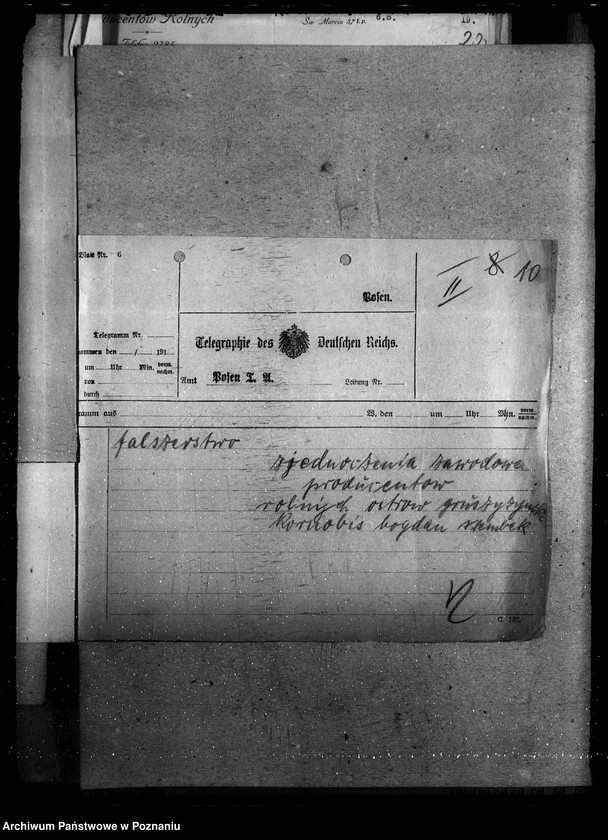 ducentów Rolnych
Św Marcin 37 I.p.
6.8.
19.
Blatt Nr. 6
8 10
II
Posen.
Telegraphie des Deutschen Reichs.
Telegramm Nr.
ommen den / 191
um Uhr Min. vorm. nachm.
von
durch
Amt Posen T. A.
Leitung Nr.
ramm aus W. den um Uhr Min. vorm. nachm.
falszerstwo
zjednoczenia zawodowe
producentow
rolnych ostrow
kornobis bogdan szembek
C. 187.
Archiwum Państwowe w Poznaniu